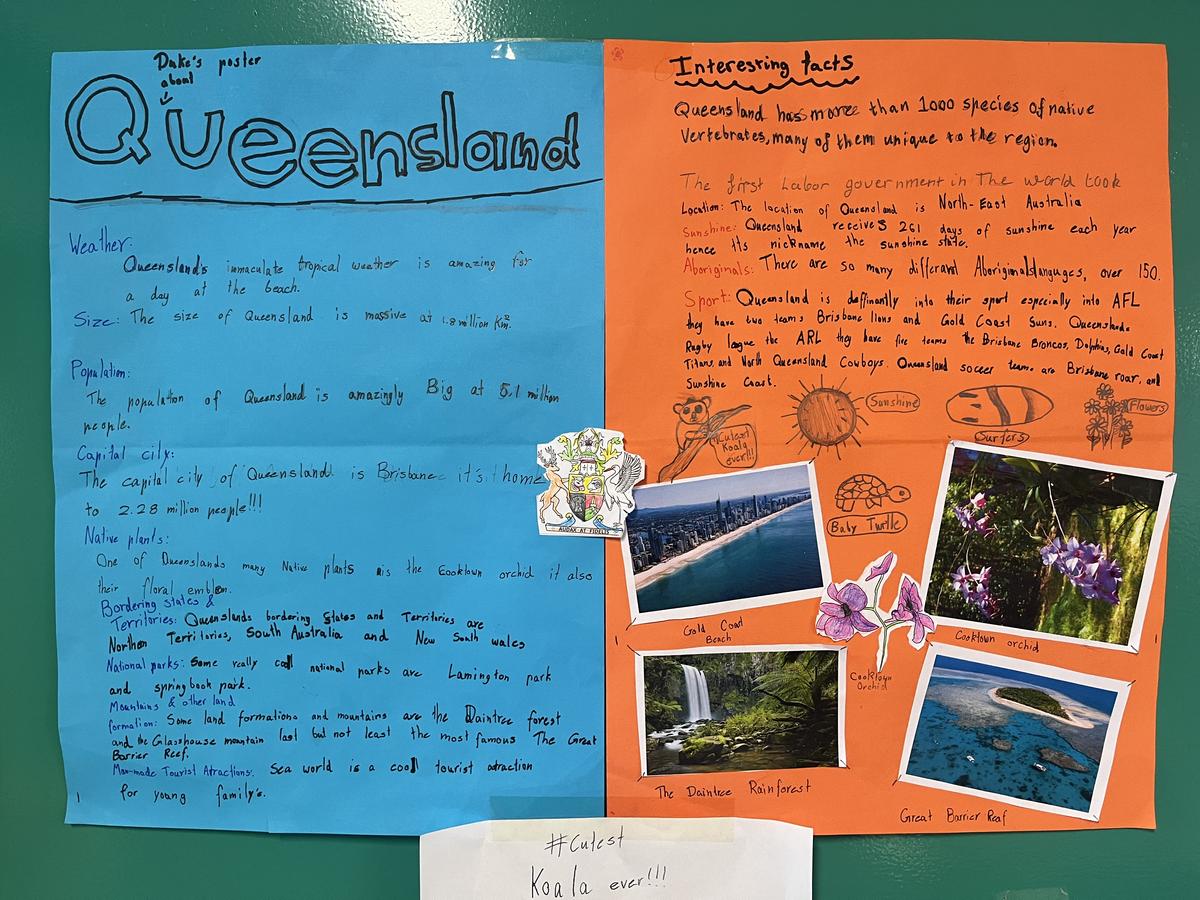 Duke's poster
about
Queensland
Weather:
Queensland's immaculate tropical weather is amazing for
a day at the beach.
Size: The size of Queensland is massive at 1.8 million Km²
Population:
The population of Queensland is amazingly Big at 5.1 million
people.
Capital city:
The capital city of Queensland is Brisbane it's home
to 2.28 million people!!!
Native plants:
One of Queenslands many Native plants is the Cooktown orchid it also
their floral emblem.
Bordering states &
Territories: Queenslands bordering States and Territories are
Northen Territories, South Australia and New South wales
National parks: Some really cool national parks are Lamington park
and springbook park.
Mountains & other land
formation: Some land formations and mountains are the Daintree forest
and the Glasshouse mountain last but not least the most famous The Great
Barrier Reef.
Man-made Tourist Atractions: Sea world is a cool tourist attraction
for young family's.
Interesring facts
Queensland has more than 1000 species of native
vertebrates, many of them unique to the region.
The first Labor government in The world took
Location: The location of Queensland is North-East Australia
Sunshine: Queensland receives 261 days of sunshine each year
hence its nickname the sunshine state.
Aboriginals: There are so many differant Aboriginal languges, over 150.
Sport: Queensland is deffinantly into their sport especially into AFL
they have two teams Brisbane lions and Gold Coast Suns. Queenslands
Rugby league the ARL they have five teams the Brisbane Broncos, Dolphins, Gold Coast
Titans, and North Queensland Cowboys. Queensland soccer teams are Brisbane roar, and
Sunshine Coast.
Cutest
Koala
ever!!!
Sunshine
Surfers
Flowers
Baby Turtle
AUDAX AT FIDELIS
Gold Coast
Beach
Cooktown orchid
Cooktown
Orchid
The Daintree Rainforest
Great Barrier Reef
#Cutest
Koala ever!!!